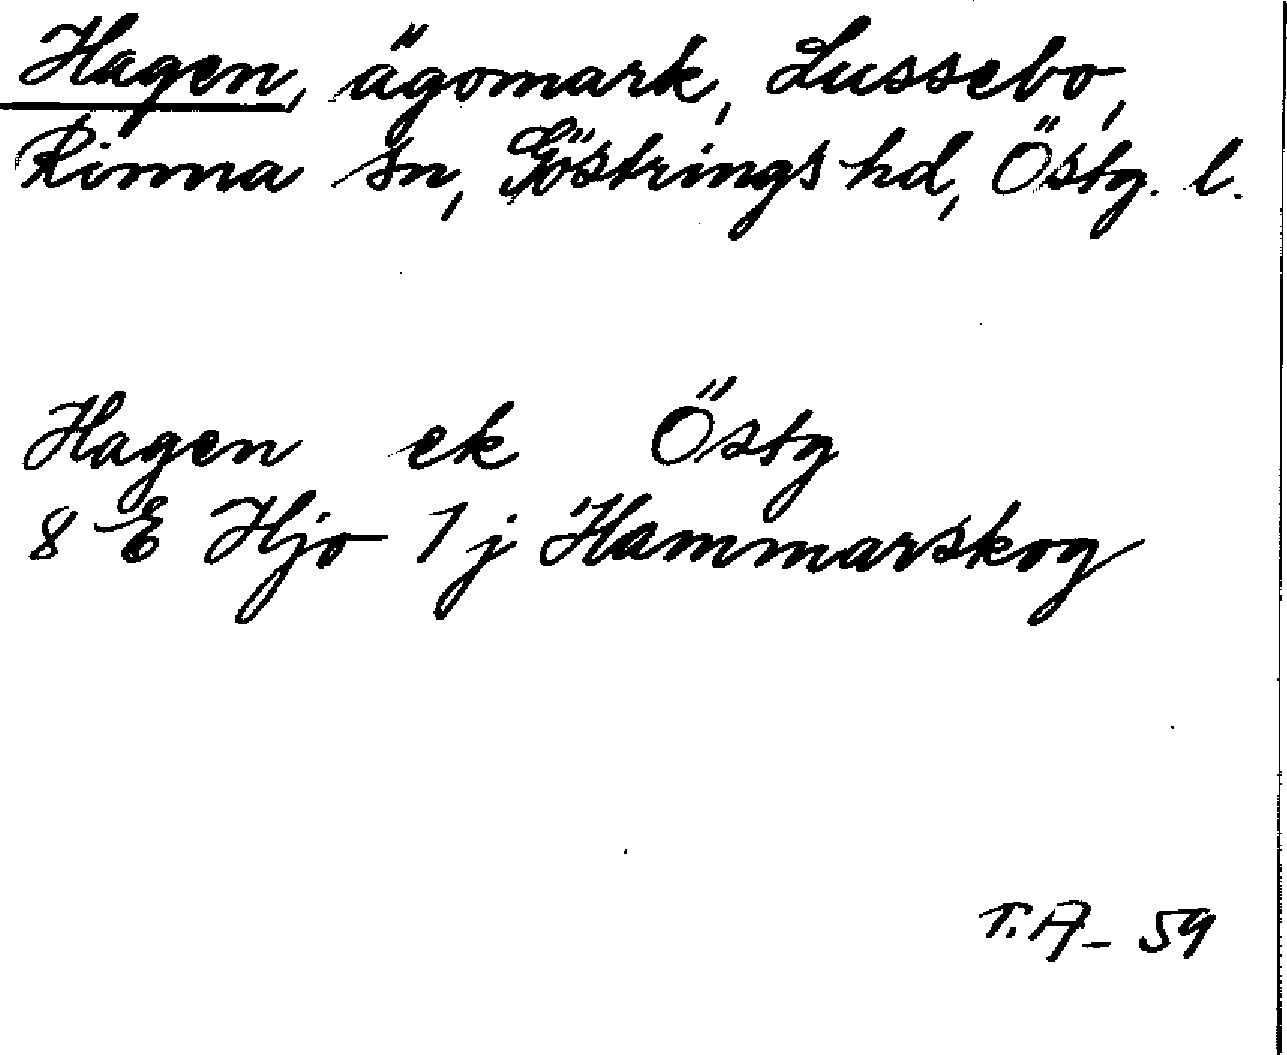 Hagen, ägomark, Lussebo,
Rinna sn, Göstrings hd, Östg. l.
Hagen ek Östg
8 E Hjo 1 j Hammarskog
T.A - 59